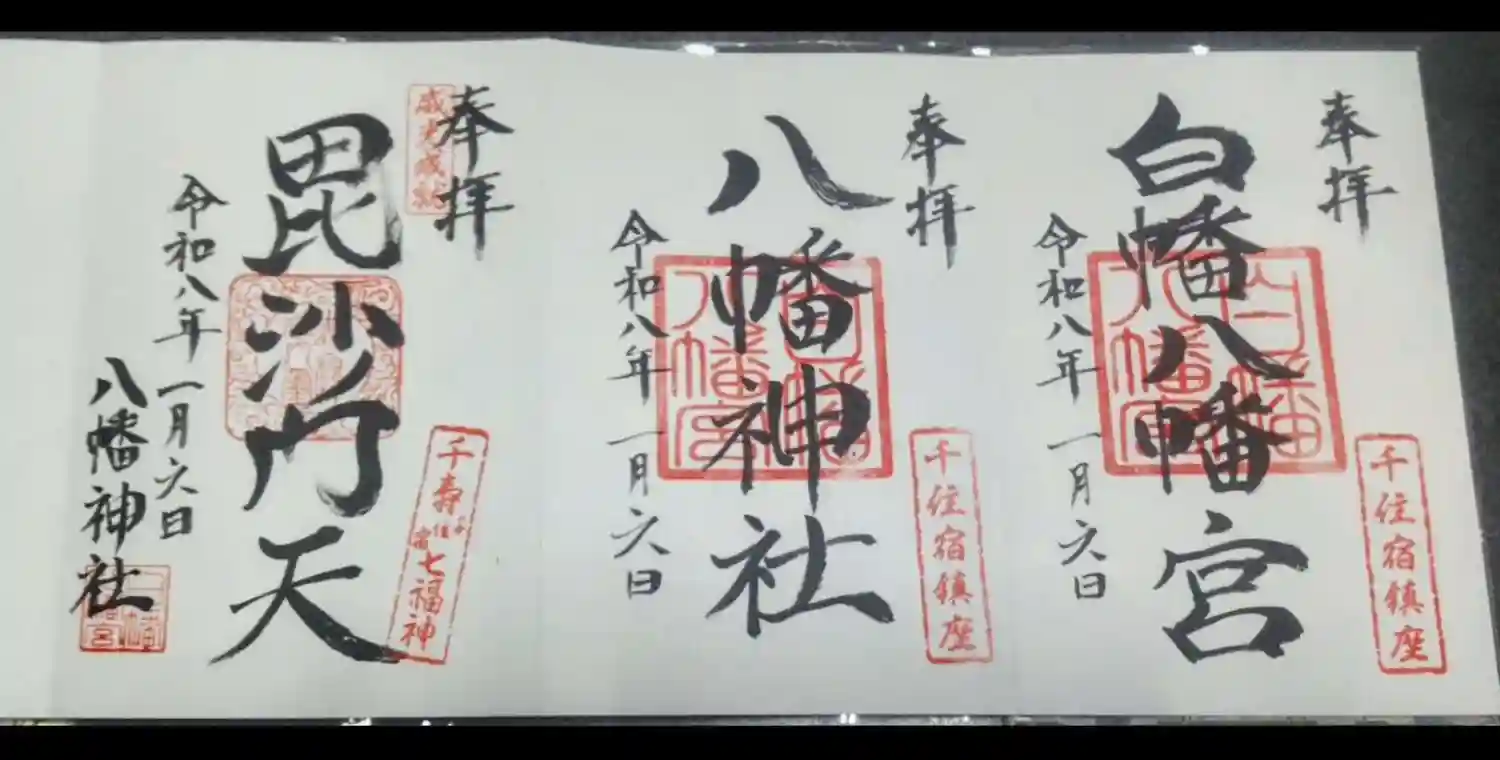 奉拝
白幡八幡宮
千住宿鎮座
令和八年一月六日
奉拝
八幡神社
千住宿鎮座
令和八年一月六日
奉拝
毘沙門天
千寿七福神
令和八年一月六日
八幡神社